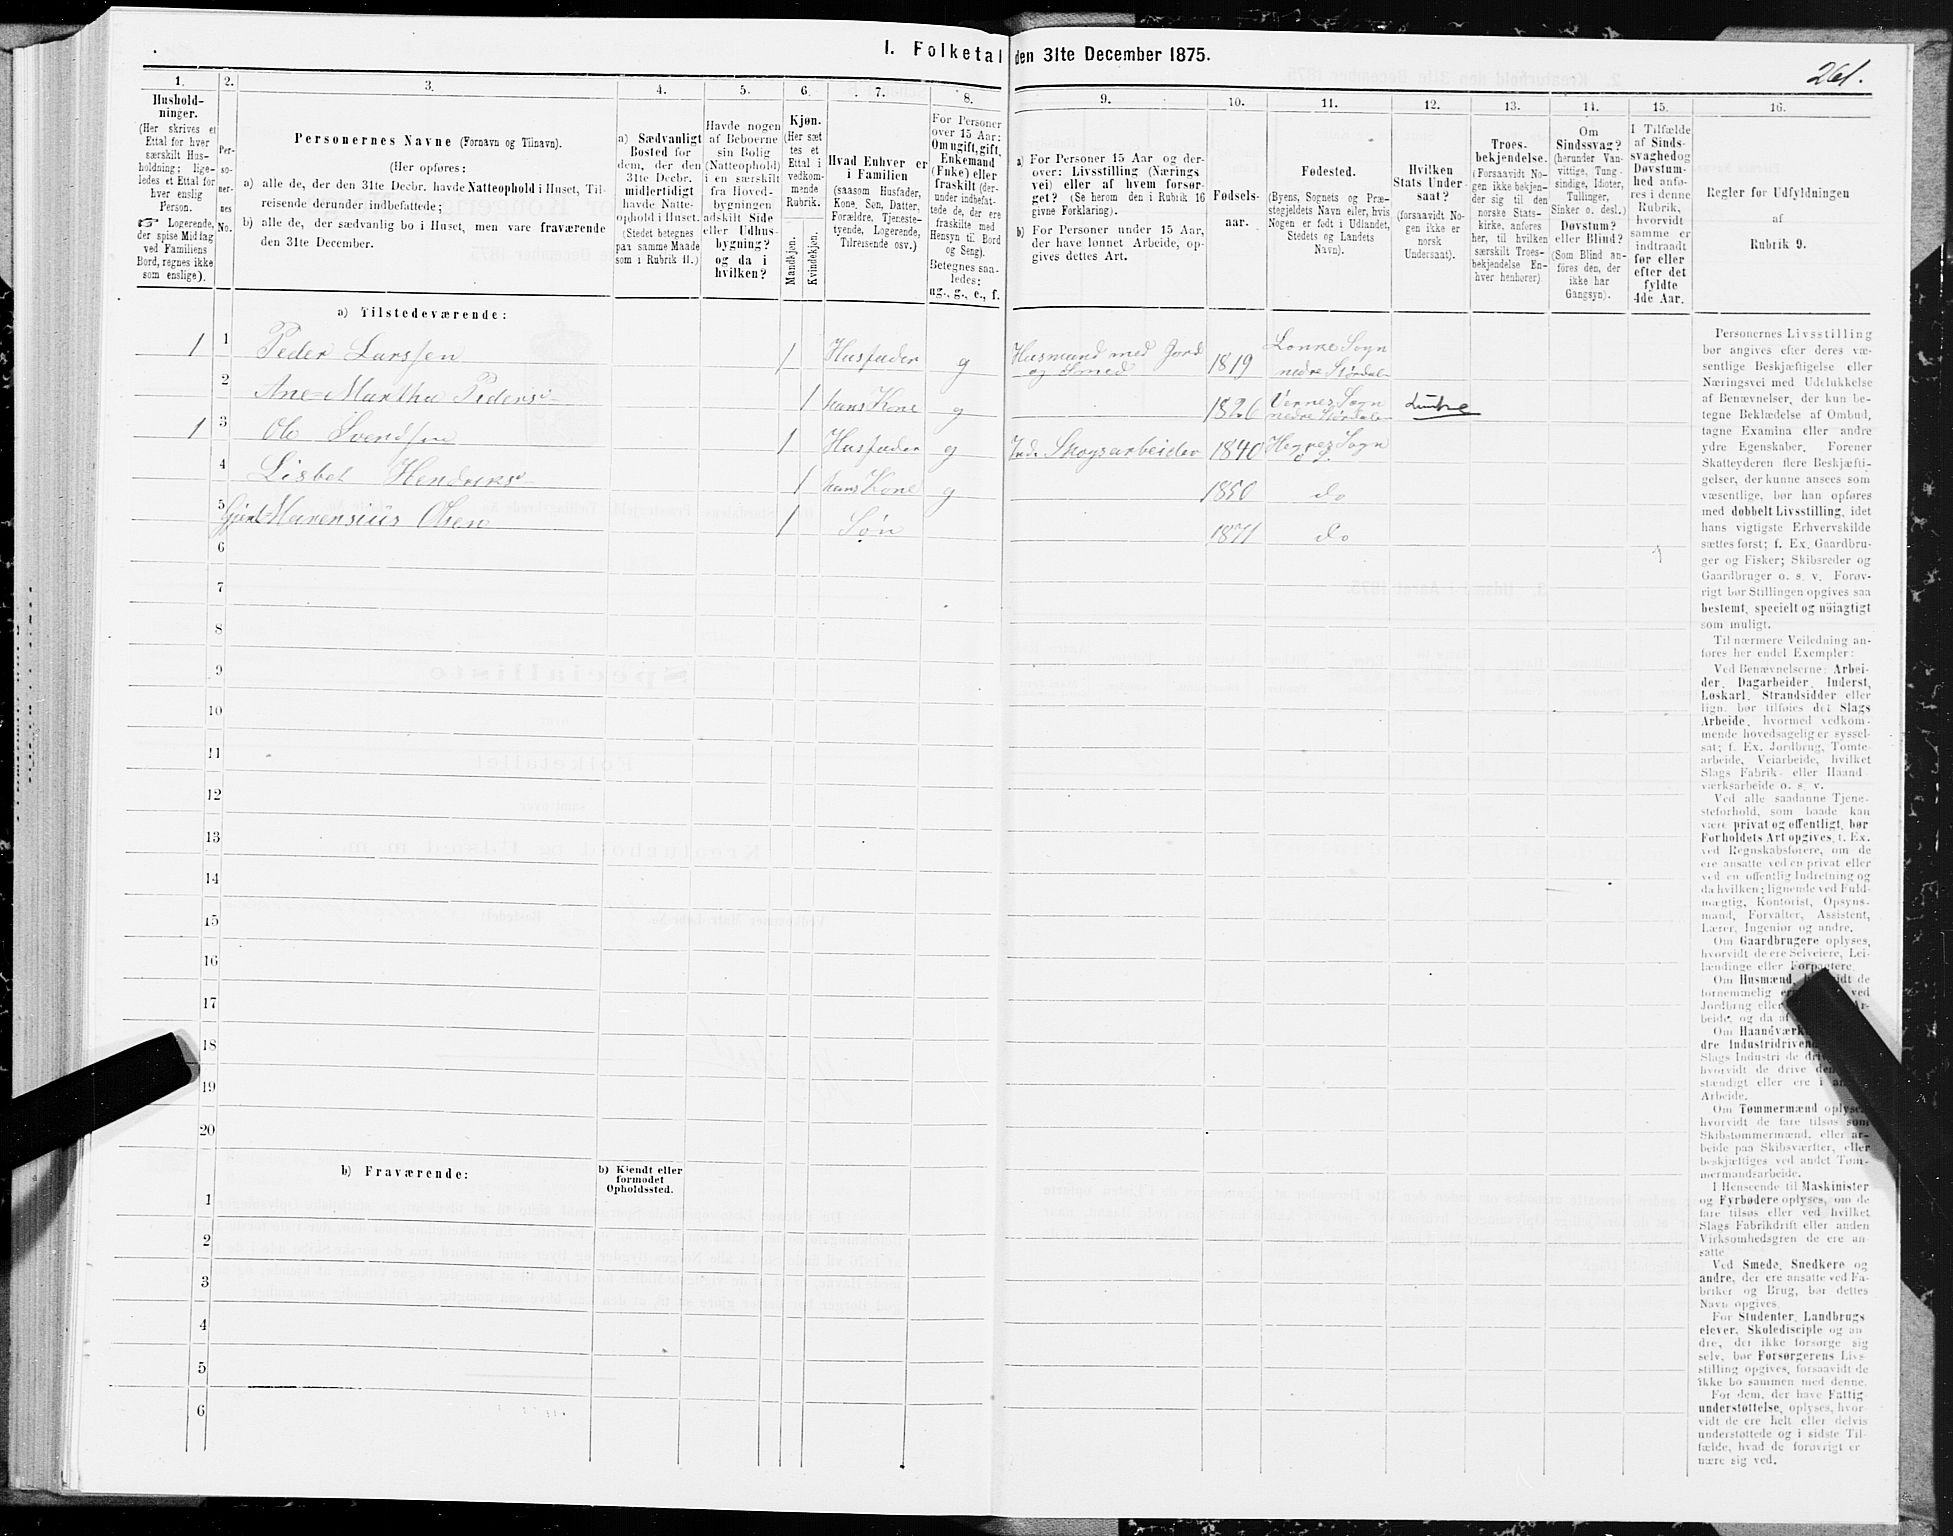 I. Folketal den 31te December 1875.
261.
1.
Hushold-
ninger.
(Her skrives et
Ettal for hver
særskilt Hus-
holdning; lige-
ledes et Ettal for
hver enslig
Person.
☞ Logerende,
der spise Middag
ved Familiens
Bord, regnes ikke
som enslige).
2.
Per-
so-
ner-
nes
No.
3.
Personernes Navne (Fornavn og Tilnavn).
(Her opføres:
a) alle de, der den 31te Decbr. havde Natteophold i Huset, Til-
reisende derunder indbefattede;
b) alle de, der sædvanlig bo i Huset, men vare fraværende
den 31te December.
4.
a) Sædvanligt
Bosted for
dem, der den
31te Decbr.
midlertidigt
havde Natte-
ophold i Huset.
(Stedet betegnes
paa samme Maade
som i Rubrik 11.)
5.
Havde nogen
af Beboerne
sin Bolig
(Natteophold)
i en særskilt
fra Hoved-
bygningen
adskilt Side
eller Udhus-
bygning?
og da i
hvilken?
6.
Kjøn.
(Her sæt
tes et
Ettal i
vedkom-
mende
Rubrik.
Mandkjøn.
Kvindekjøn.
7.
Hvad Enhver er
i Familien
(saasom Husfader,
Kone, Søn, Datter,
Forældre, Tjeneste-
tyende, Logerende,
Tilreisende osv.)
8.
For Personer
over 15 Aar:
Om ugift, gift,
Enkemand
(Enke) eller
fraskilt (der-
under indbefat-
tede de, der ere
fraskilte med
Hensyn til Bord
og Seng).
Betegnes saa-
ledes:
ug., g., e., f.
9.
a) For Personer 15 Aar og der-
over: Livsstilling (Nærings
vei) eller af hvem forsør-
get? (Se herom den i Rubrik 16
givne Forklaring).
b) For Personer under 15 Aar,
der have lønnet Arbeide, op-
gives dettes Art.
10.
Fødsels-
aar.
11.
Fødested.
(Byens, Sognets og Præ-
stegjeldets Navn eller, hvis
Nogen er født i Udlandet,
Stedets og Landets
Navn).
12.
Hvilken
Stats Under-
saat?
(forsaavidt No-
gen ikke er
norsk
Undersaat).
13.
Troes-
bekjendelse.
(Forsaavidt No-
gen ikke bekjen-
der sig til den
norske Stats-
kirke, anføres
her, til hvilken
særskilt Troes-
bekjendelse En-
hver henhører)
14.
Om
Sindssvag?
(herunder Van-
vittige, Tung-
sindige, Idioter,
Tullinger,
Sinker o. desl.)
Døvstum?
eller Blind?
(Som Blind an-
føres den, der
ikke har
Gangsyn).
15.
I Tilfælde
af Sinds-
svaghed og
Døvstum-
hed anfø-
res i denne
Rubrik,
hvorvidt
samme er
indtraadt
før eller
efter det
fyldte
4de Aar.
16.
Regler for Udfyldningen
af
Rubrik 9.
a) Tilstedeværende:
1 1 Peder Larssen 1 Husfader g Husmand med Jord og Smed 1819 Lonke Sogn nedre Størdal
2 Ane-Martha Peders 1 hans Kone g 1826 Vernes Sogn nedre Størdal
1 3 Ole Svendsen 1 Husfader g Ind. Skogsarbeider 1840 Hegres Sogn
4 Lisbet Hendriks 1 hans Kone g 1850 do
5 Marensius Olsen 1 Søn 1871 do
6
7
8
9
10
11
12
13
14
15
16
17
18
19
20
b) Fraværende:
b) Kjendt eller
formodet
Opholdssted.
1
2
3
4
5
6
Personernes Livsstilling
bør angives efter deres væ-
sentlige Beskjæftigelse eller
Næringsvei med Udelukkelse
af Benævnelser, der kun be-
tegne Beklædelse af Ombud,
tagne Examina eller andre
ydre Egenskaber. Forener
Skatteyderen flere Beskjæfti-
gelser, der kunne ansees som
væsentlige, bør han opføres
med dobbelt Livsstilling, idet
hans vigtigste Erhvervskilde
sættes først; f. Ex. Gaardbru-
ger og Fisker; Skibsreder og
Gaardbruger o. s. v. Forøv-
rigt bør Stillingen opgives saa
bestemt, specielt og nøiagtigt
som muligt.
Til nærmere Veiledning an-
føres her endel Exempler:
Ved Benævnelserne: Arbei-
der, Dagarbeider, Inderst,
Løskarl, Strandsidder eller
lign. bør tilføies det Slags
Arbeide, hvormed vedkom-
mende hovedsagelig er syssel-
sat; f. Ex. Jordbrug, Tomte-
arbeide, Veiarbeide, hvilket
Slags Fabrik- eller Haand-
værksarbeide o. s. v.
Ved alle saadanne Tjene-
steforhold, som baade kan
være privat og offentligt, bør
Forholdets Art opgives, f. Ex.
ved Regnskabsførere, om de
ere ansatte ved en privat eller
ved en offentlig Indretning og
da hvilken; lignende ved Fuld-
mægtig, Kontorist, Opsyns-
mand, Forvalter, Assistent,
Lærer, Ingeniør og andre.
Om Gaardbrugere oplyses,
hvorvidt de ere Selveiere, Lei-
lændinge eller Forpagtere.
Om Husmænd, de
fornemmelig ved
Jordbrug eller
beide, og da af
Om
dre
Slags Industri de
hvorvidt de drive
stændigt eller ere i
Arbeide.
Om Tømmermænd
hvorvidt de fare tilsøs som
Skibstømmermænd, eller ar-
beide paa Skibsværfter, eller
beskjæftiges ved andet Tøm-
mermandsarbeide.
I Henseende til Maskinister
og Fyrbødere oplyses, om de
fare tilsøs eller ved hvilket
Slags Fabrikdrift eller anden
Virksomhedsgren de ere an-
satte
Ved Smede, Snedkere og
andre, der ere ansatte ved Fa-
briker og Brug, bør dettes
Navn opgives.
For Studenter, Landbrugs
elever, Skoledisciple og an
dre, der ikke forsørge sig
selv, bør Forsørgerens Livs-
stilling opgives, forsaavidt de
ikke bo sammen med denne.
For dem, der have Fattig
understøttelse, oplyses, hvor-
vidt de ere helt eller delvis
understøttede og i sidste Til-
fælde, hvad de forøvrigt er
nære sig ved.